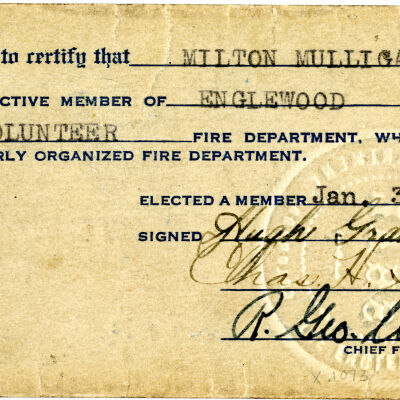 to certify that MILTON MULLIGA
CTIVE MEMBER OF ENGLEWOOD
OLUNTEER FIRE DEPARTMENT, WH
RLY ORGANIZED FIRE DEPARTMENT.
ELECTED A MEMBER Jan. 3
SIGNED Hugh Gra
Chas. H.
R. Geo.
CHIEF F
X.1073